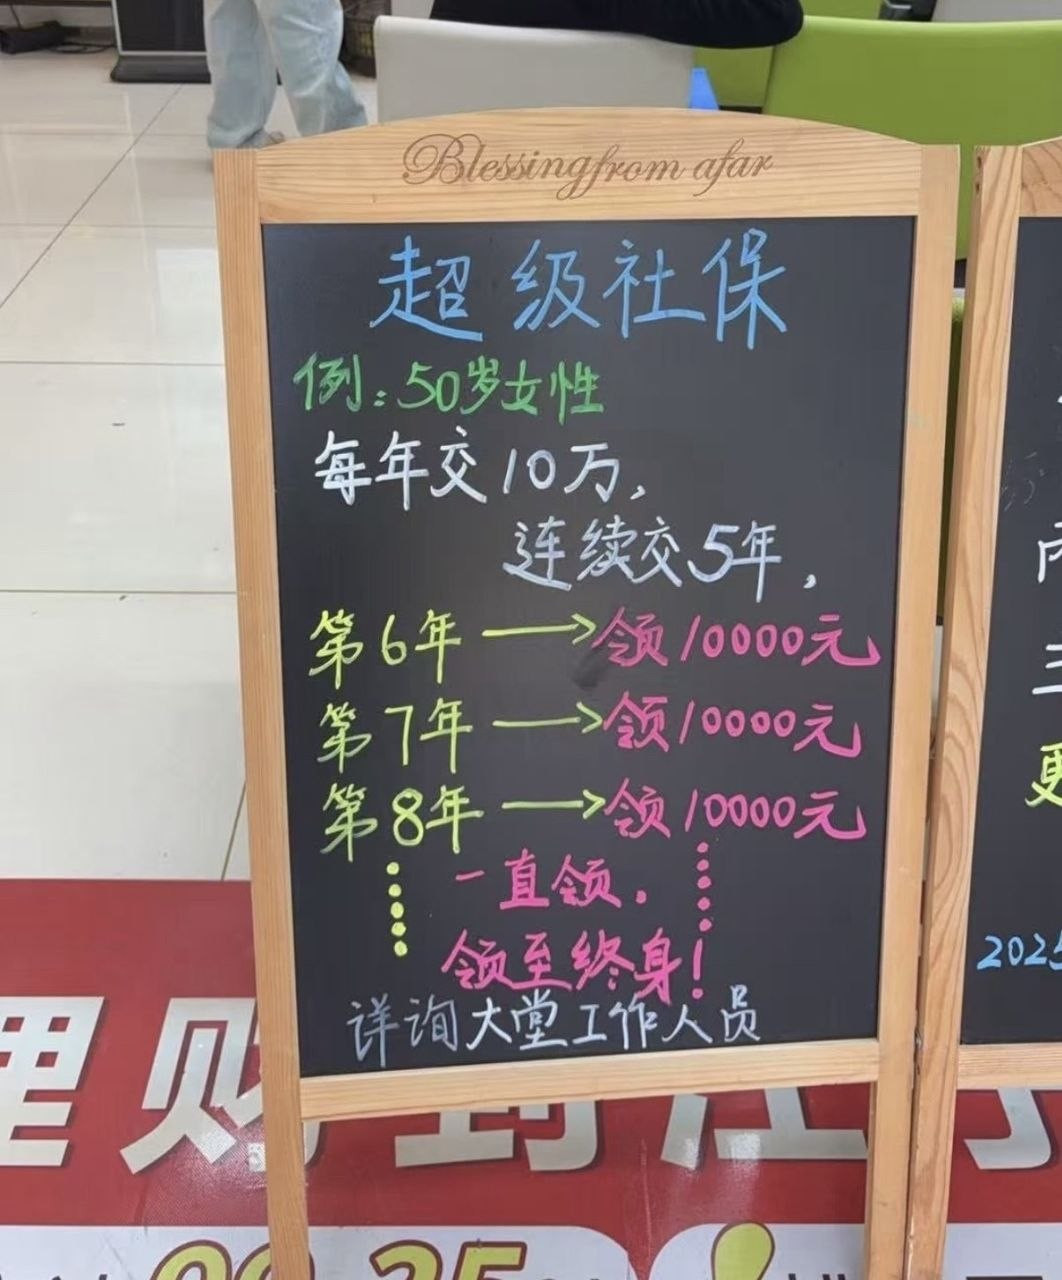 Blessing from afar
超级社保
例:50岁女性
每年交10万,
连续交5年,
第6年→领10000元
第7年→领10000元
第8年→领10000元
一直领.
领至终身!
详询大堂工作人员
2025
理财到江